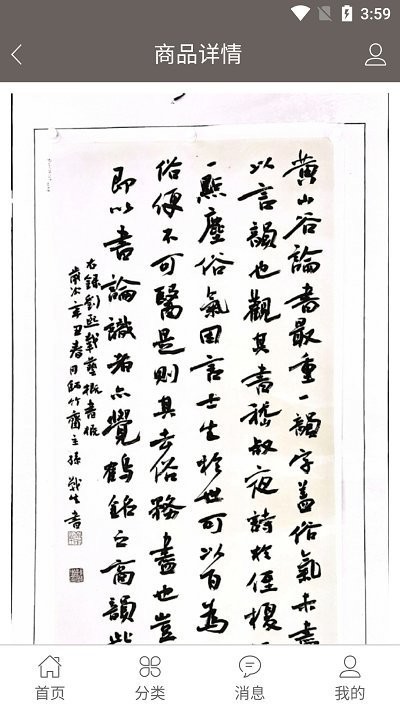 3:59
商品详情
黄山谷論書最重一韻字蓋俗氣未盡
以言韻也觀其書嵇叔夜詩於侄榎
一點塵俗氣因言士生於世可以百為
俗便不可醫是則其去俗務盡也豈
即以書論識者亦覺鶴銘之高韻此
右録劉熙載藝概書概
歲次辛丑春月竹齋主孫書
首页
分类
消息
我的